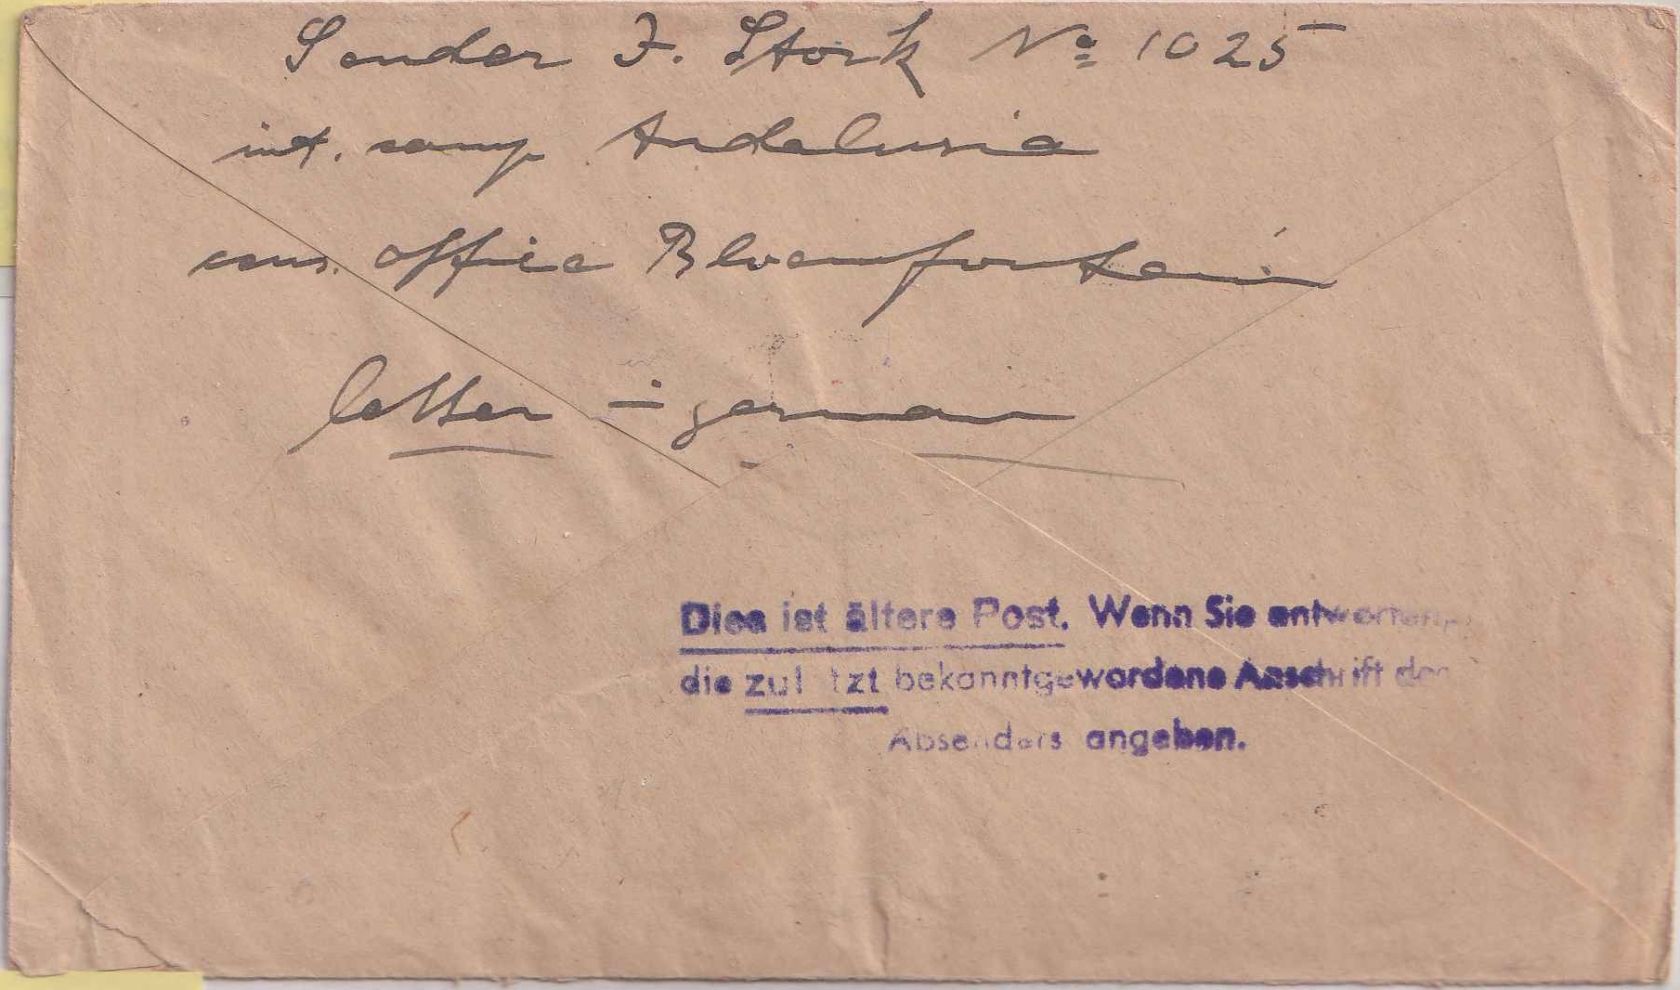 Sender J. Stork Nº 1025
int. camp Andalusia
cens. office Bloemfontein
letter - german
Dies ist ältere Post. Wenn Sie antworten,
die zul tzt bekanntgewordene Anschrift des
Absenders angeben.